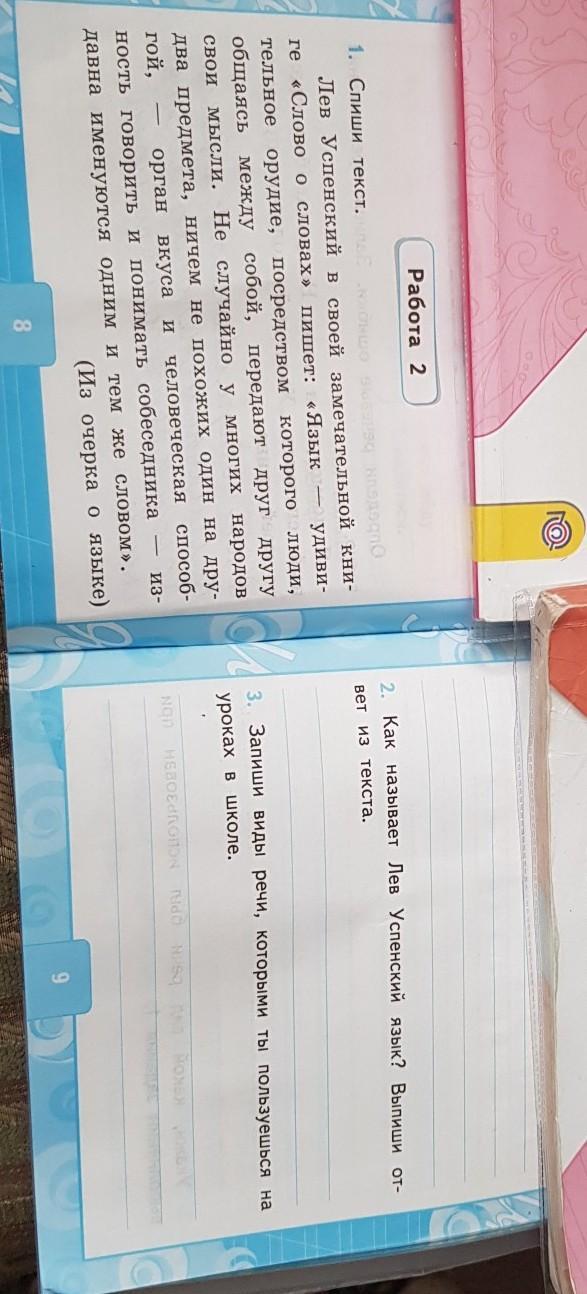 Работа 2
1. Спиши текст.
Лев Успенский в своей замечательной кни-
ге «Слово о словах» пишет: «Язык — удиви-
тельное орудие, посредством которого люди,
общаясь между собой, передают друг другу
свои мысли. Не случайно у многих народов
два предмета, ничем не похожих один на дру-
гой, — орган вкуса и человеческая способ-
ность говорить и понимать собеседника — из-
давна именуются одним и тем же словом».
(Из очерка о языке)
8
2. Как называет Лев Успенский язык? Выпиши от-
вет из текста.
3. Запиши виды речи, которыми ты пользуешься на
уроках в школе.
9